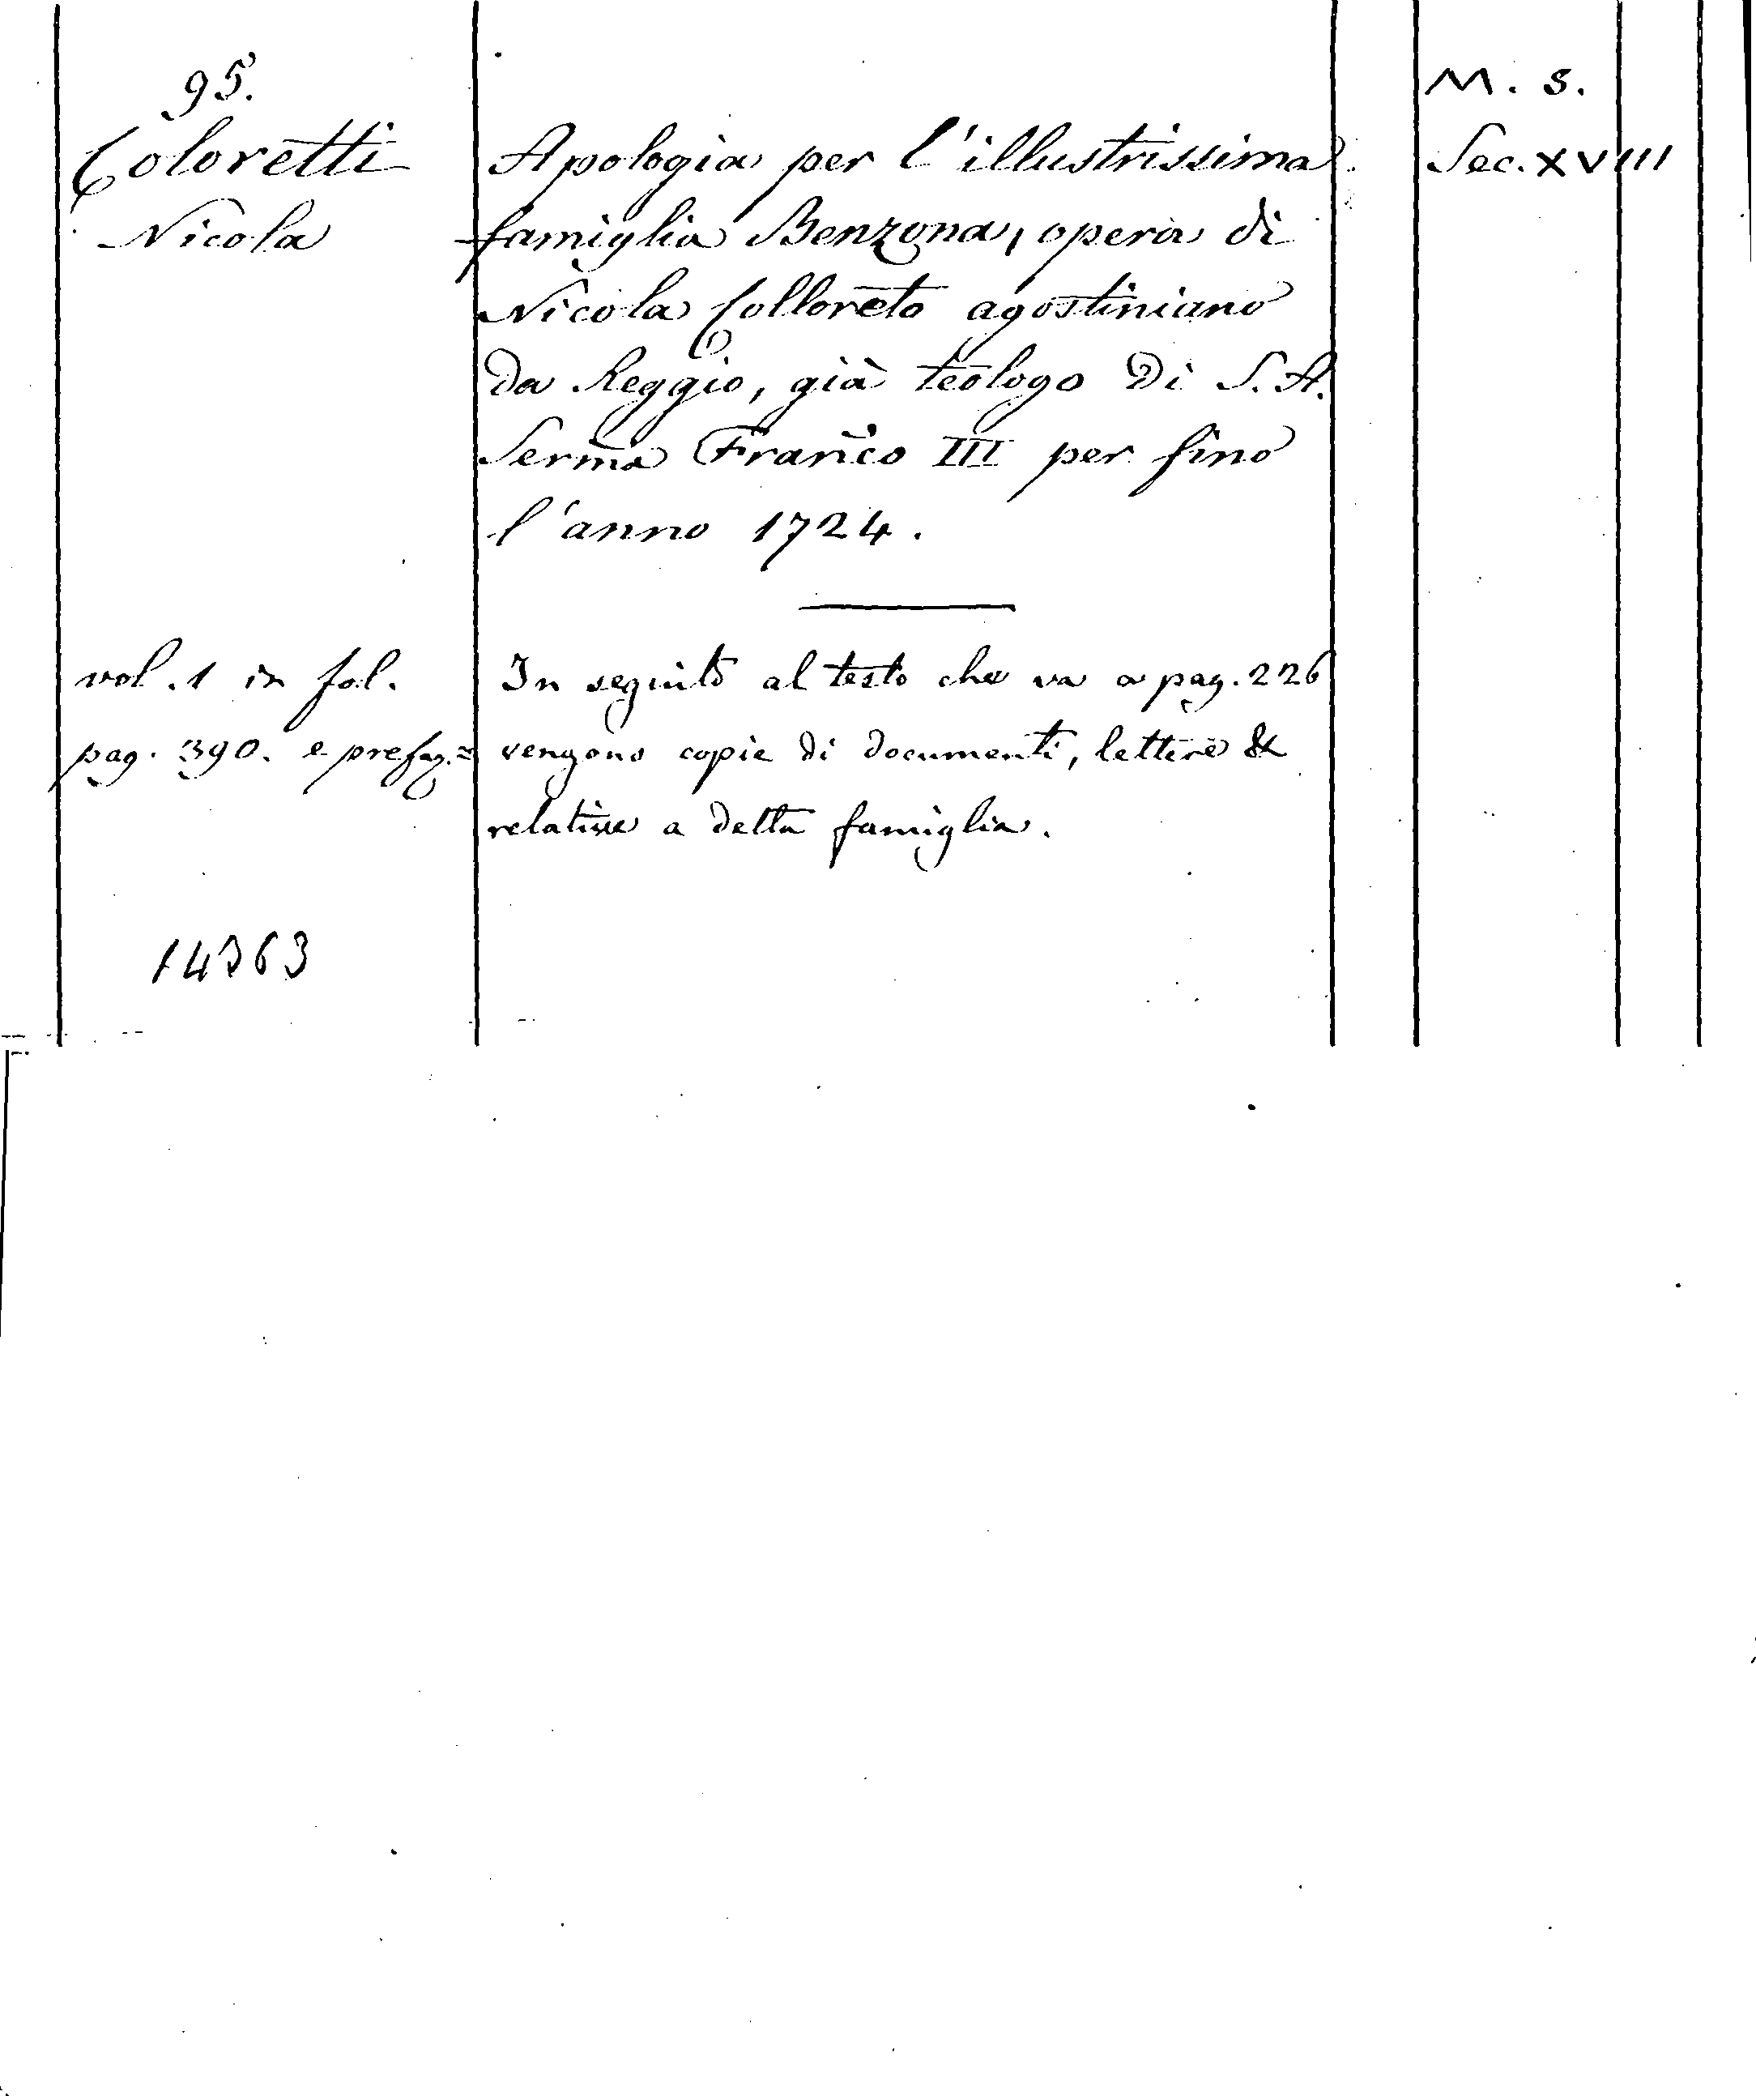 95.
Coloretti
Nicola
Apologia per l'illustrissima
famiglia Benzona, opera di
Nicola Colloreto agostiniano
da Reggio, già teologo di S. A.
Serma Franco III per fino
l'anno 1724.
M. S.
Sec. XVIII
vol. 1 in fol.
pag. 390. e prefaz.=
In seguito al testo che va a pag. 226
vengono copie di documenti, lettere &
relative a detta famiglia.
14363